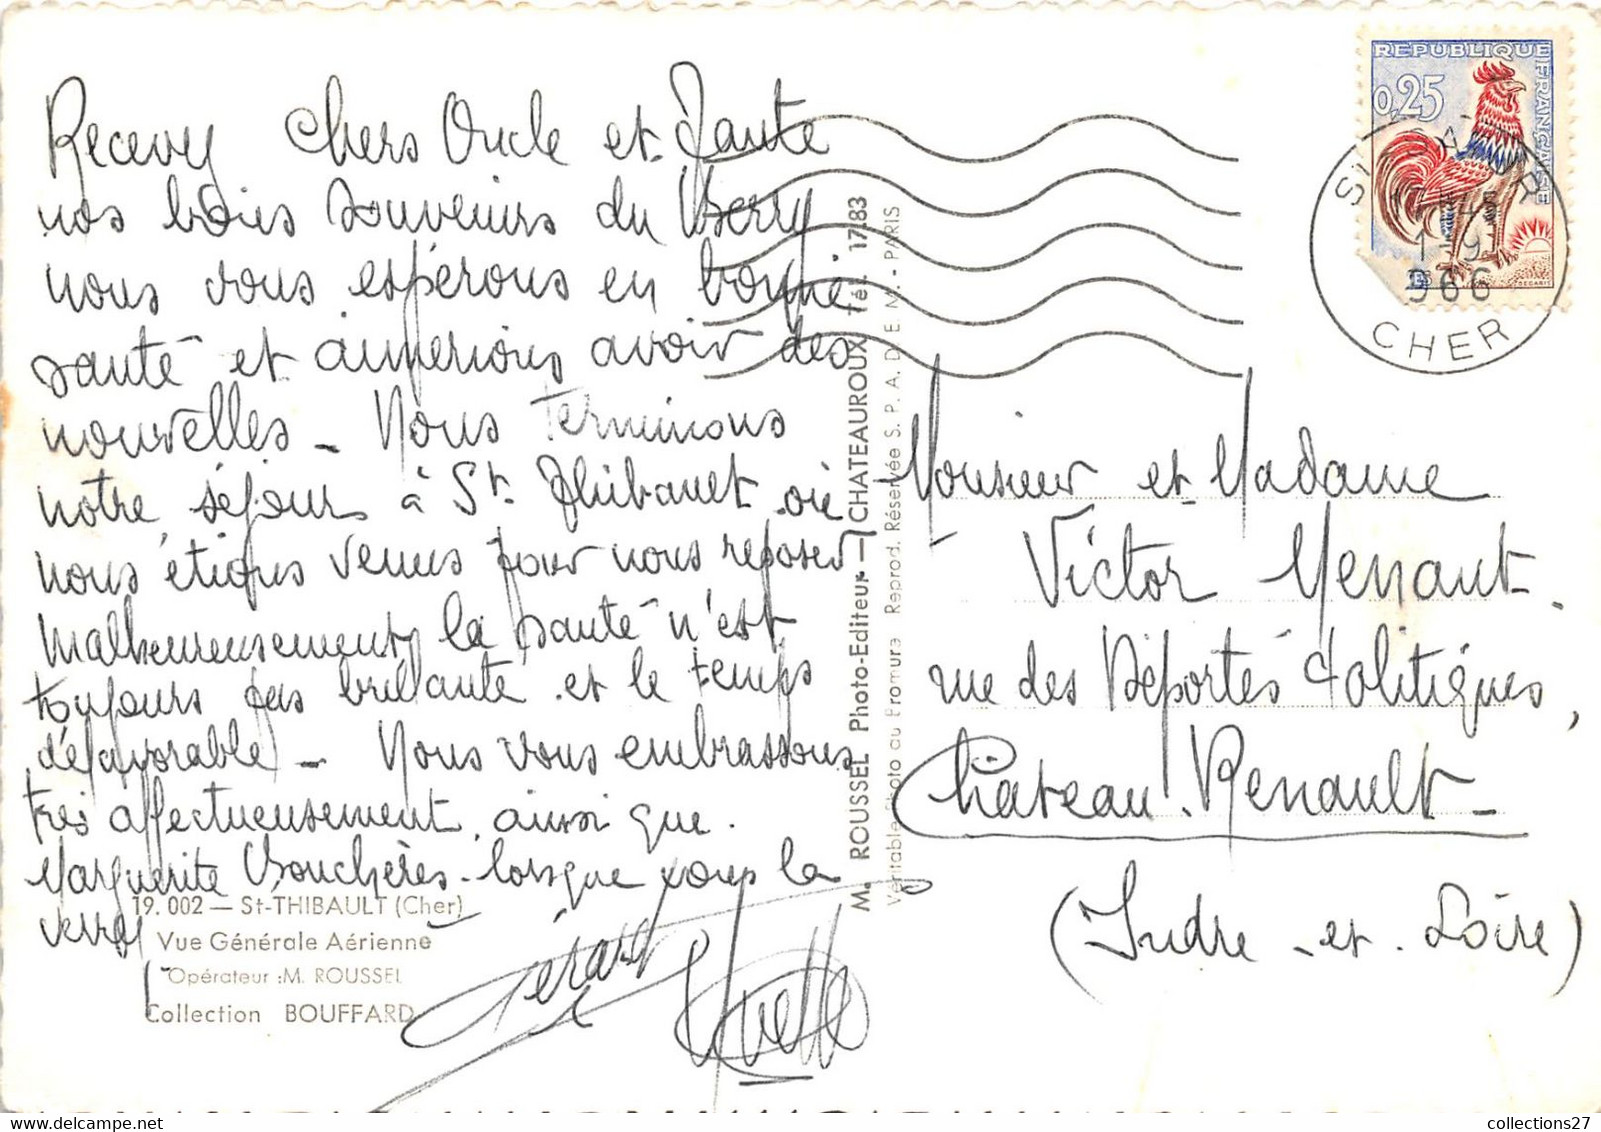 Recevez Chers Oncle et Tante
nos bons souvenirs du Berry
nous vous espérons en bonne
santé et aimerions avoir des
nouvelles _ Nous terminons
notre séjour à St. Thibault où
nous étions venus pour nous reposer
Malheureusement la santé n'est
toujours pas brillante et le temps
défavorable _ Nous vous embrassons
très affectueusement, ainsi que
Marguerite Bouchères - lorsque vous la
verrez
Gérard
Yvette
19.002 — St-THIBAULT (Cher)
Vue Générale Aérienne
Opérateur : M. ROUSSEL
Collection BOUFFARD
M. ROUSSEL Photo-Editeur — CHATEAUROUX Tél. 17.83
Véritable Photo au Bromure Reprod. Réservée S. P. A. D. E. M. - PARIS
REPUBLIQUE FRANÇAISE
0,25
DECARIS
CHER
Monsieur et Madame
Victor Menant
rue des Déportés Politiques,
Château-Renault -
(Indre - et - Loire)
collections27